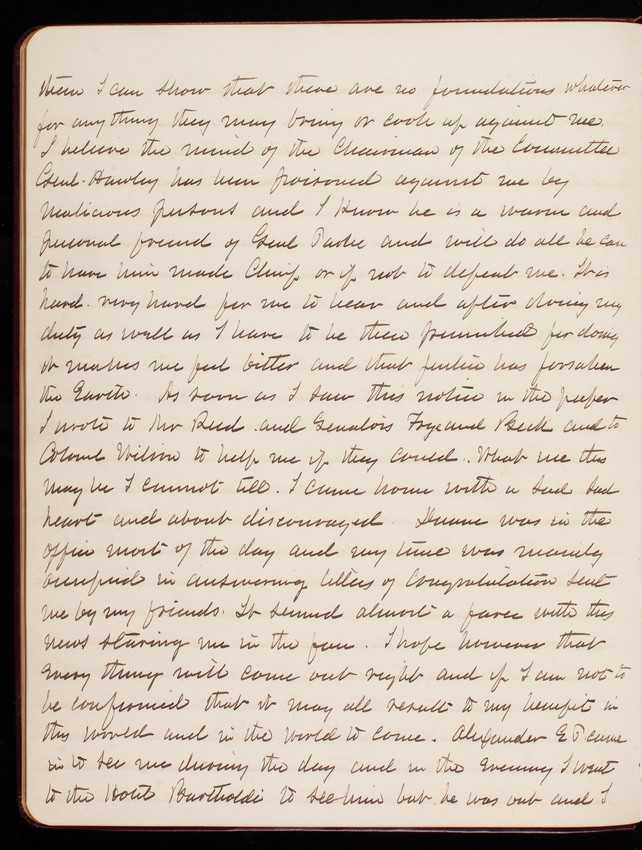 them I can show that there are no foundations whatever
for anything they may bring or cook up against me.
I believe the mind of the Chairman of the Committee
Genl. Hawley has been poisoned against me by
malicious persons and I know he is a warm and
personal friend of Genl Parke and will do all he can
to have him made Chief or if not to defeat me. It is
hard. very hard for me to bear and after doing my
duty as well as I have to be then punished for doing
it makes me feel bitter and that justice has forsaken
the Earth. As soon as I saw this notice in the paper
I wrote to Mr Reed. and Senators Frye and Beck and to
Colonel Wilson to help me if they could. What use this
may be I cannot tell. I came home with a sad sad
heart and about discouraged. Duane was in the
office most of the day and my time was mainly
occupied in answering letters of Congratulation sent
me by my friends. It seemed almost a farce with this
news staring me in the face. I hope however that
every thing will come out right and if I am not to
be confirmed that it may all result to my benefit in
this world and in the world to come. Alexander E P came
in to see me during the day and in the Evening I went
to the Hotel Bartholdi to see him but he was out and I